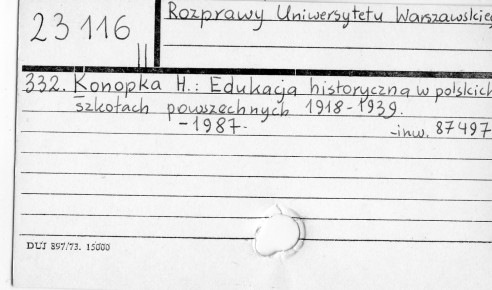 23 116 II
Rozprawy Uniwersytetu Warszawskieg
332. Konopka H.: Edukacja historyczna w polskich
szkołach powszechnych 1918-1939.
-1987. -inw. 87497
DUJ 897/73. 15000